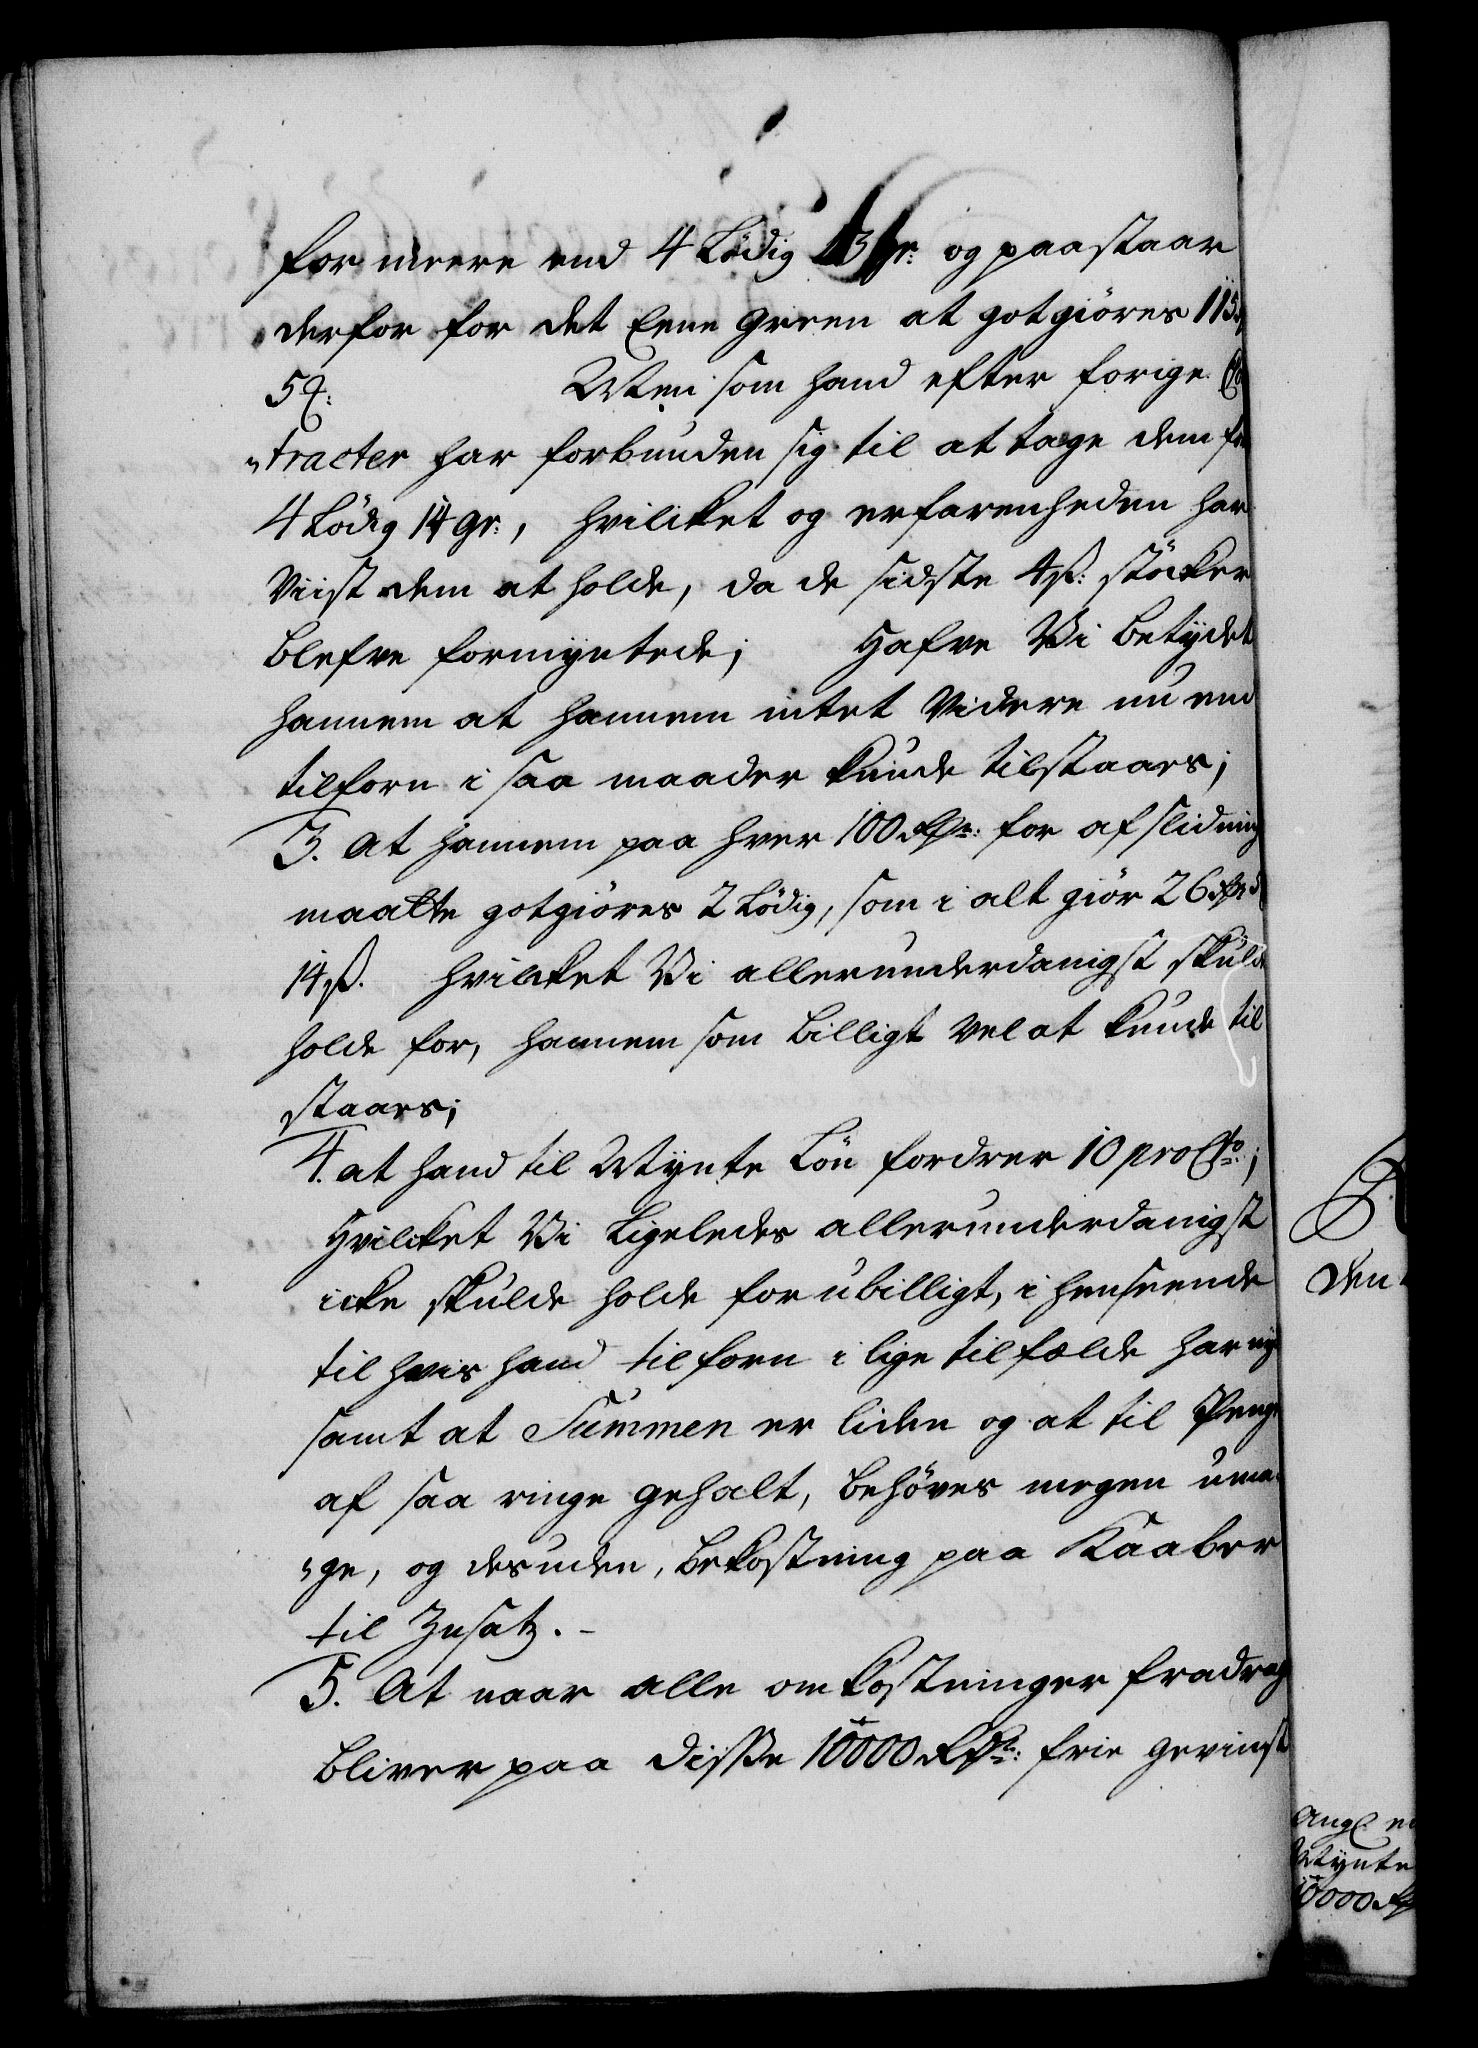 for meere end 4 Lödig 13 gr: og paastaar
derfor for det Eene green at gotgiöres 115
5 Men som hand efter forige Co
"tracter har forbunden sig til at tage dem for
4 Lödig 14 gr:, hvilcket og erfarenheden har
Viist dem at holde, da de sidste 4 ß: stöcker
blefve formyntede; Hafve Vi betydet
hannem at hannem intet Videre nu end
tilforn i saa maader kunde tilstaaes;
3. At hannem paa hver 100 Rdr: for afslidning
maatte gotgiöres 2 Lödig, som i alt giör 26 Rdr
14 ß. hvilcket Vi allerunderdanigst skulde
holde for, hannem som billigt vel at kunde til
staaes;
4. at hand til Mynte Lön fordrer 10 pro Cto:;
Hvilcket Vi Ligeledes allerunderdanigst
icke skulde holde for ubilligt, i henseende
til hvis hand tilforn i lige tilfælde har
samt at Summen er liden og at til Penge
af saa ringe gehalt, behöves megen uma
"ge, og desuden, bekostning paa Kaaber
til Zusatz. -
5. At naar alle omkostninger fradrag
bliver paa disse 10000 Rdr: frie gevinst
den
Ang: en
Mynte
10000 Rd